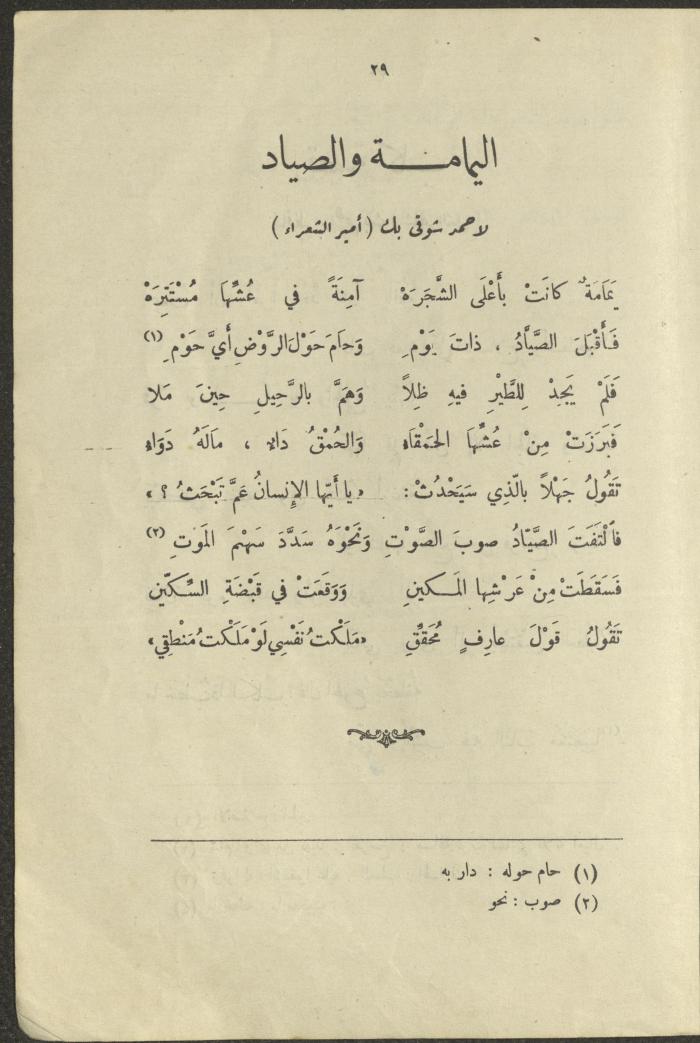 ٢٩
اليمامـــة والصياد
لاحمد شوقي بك ( أمير الشعراء )
يَمَامَةٌ كانَتْ بأَعْلَى الشَّجَرَهْ آمِنَةً في عُشِّها مُسْتَتِرَهْ
فَأَقْبَلَ الصَّيَّادُ ، ذاتَ يَوْمِ وَحامَ حَوْلَ الرَّوْضِ أَيَّ حَوْمِ (١)
فَلَمْ يَجِدْ لِلطَّيْرِ فيهِ ظِلاًّ وَهَمَّ بالرَّحِيلِ حِينَ مَلا
فَبَرَزَتْ مِنْ عُشِّها الحَمْقَاءُ وَالحُمْقُ دَاءٌ ، مَالَهُ دَوَاءُ
تَقُولُ جَهْلاً بالّذِي سَيَحْدُثْ : « يا أَيّها الإِنسانُ عَمَّ تَبْحَثْ ؟ »
فَالْتَفَتَ الصَّيّادُ صوبَ الصَّوْتِ وَنَحْوَهُ سَدَّدَ سَهْمَ المَوتِ (٢)
فَسَقَطَتْ مِنْ عَرْشِها المَـكينِ وَوَقَعَتْ في قَبْضَةِ السِّكّينِ
تَقُولُ قَوْلَ عارِفٍ مُحَقِّقِ «مَلَكْتُ نَفْسِي لَوْ مَلَكْتُ مَنْطِقِي»
(١) حام حوله : دار به
(٢) صوب : نحو